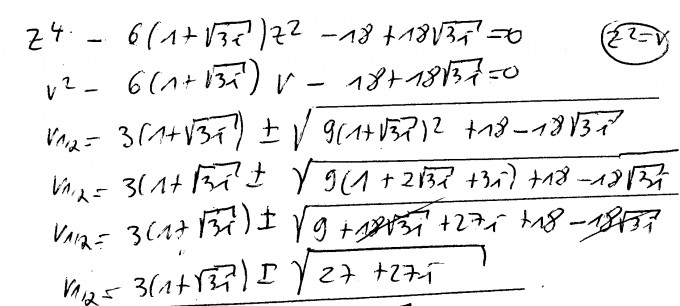 z⁴ - 6(1+√3i)z² -18+18√3i=0 z²=v
v² - 6(1+√3i) v - 18+18√3i=0
v1,2= 3(1+√3i) ± √9(1+√3i)² +18-18√3i
v1,2= 3(1+√3i ± √9(1+2√3i+3i)+18-18√3i
v1,2= 3(1+√3i) ± √9+18√3i+27i+18-18√3i
v1,2= 3(1+√3i) ± √27+27i